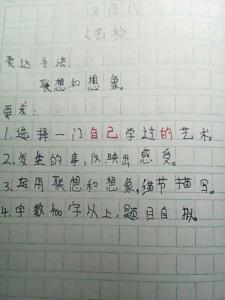 习作八
《艺术》
表达手法:
联想和想象。
要求:
1.选择一门自己学过的艺术。
2.发生的事,反映出感受。
3.运用联想和想象,细节描写。
4.字数400字以上,题目自拟。